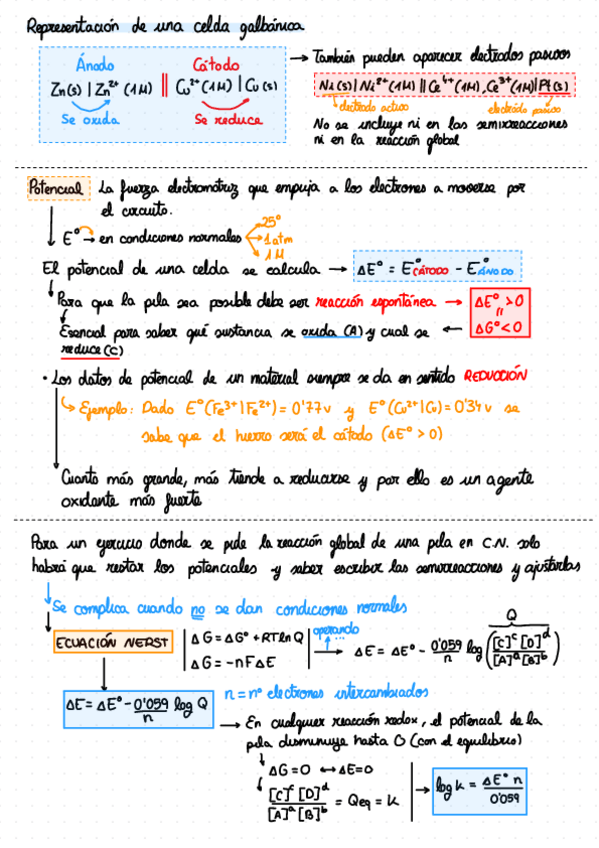 Representación de una celda galbánica
Ánodo Cátodo
Zn(s) | Zn²⁺(1M) || Cu²⁺(1M) | Cu(s)
Se oxida Se reduce
→ También pueden aparecer electrodos pasivos
Ni(s) | Ni²⁺(1M) || Ce⁴⁺(1M), Ce³⁺(1M) | Pt(s)
electrodo activo electrodo pasivo
No se incluye ni en las semirreacciones
ni en la reacción global
Potencial La fuerza electromotriz que empuja a los electrones a moverse por
el circuito.
E° → en condiciones normales
25°
1 atm
1 M
El potencial de una celda se calcula → ΔE° = E°CÁTODO - E°ÁNODO
Para que la pila sea posible debe ser reacción espontánea → ΔE° > 0
ΔG° < 0
Esencial para saber qué sustancia se oxida (A) y cual se
reduce (C)
• Los datos de potencial de un material siempre se da en sentido REDUCCIÓN
Ejemplo: Dado E°(Fe³⁺|Fe²⁺) = 0'77v y E°(Cu²⁺|Cu) = 0'34v se
sabe que el hierro será el cátodo (ΔE° > 0)
Cuanto más grande, más tiende a reducirse y por ello es un agente
oxidante más fuerte
Para un ejercicio donde se pide la reacción global de una pila en C.N. solo
habrá que restar los potenciales y saber escribir las semirreacciones y ajustarlas
Se complica cuando no se dan condiciones normales
ECUACIÓN NERST
ΔG = ΔG° + RT ln Q
ΔG = -nFΔE
operando
→ ΔE = ΔE° - 0'059/n log ([C]ᶜ [D]ᵈ / [A]ᵃ [B]ᵇ)
Q
ΔE = ΔE° - 0'059/n log Q
n = nº electrones intercambiados
→ En cualquier reacción redox, el potencial de la
pila disminuye hasta 0 (con el equilibrio)
ΔG = 0 ↔ ΔE = 0
[C]ᶜ [D]ᵈ / [A]ᵃ [B]ᵇ = Qeq = K
→ log K = ΔE° n / 0'059